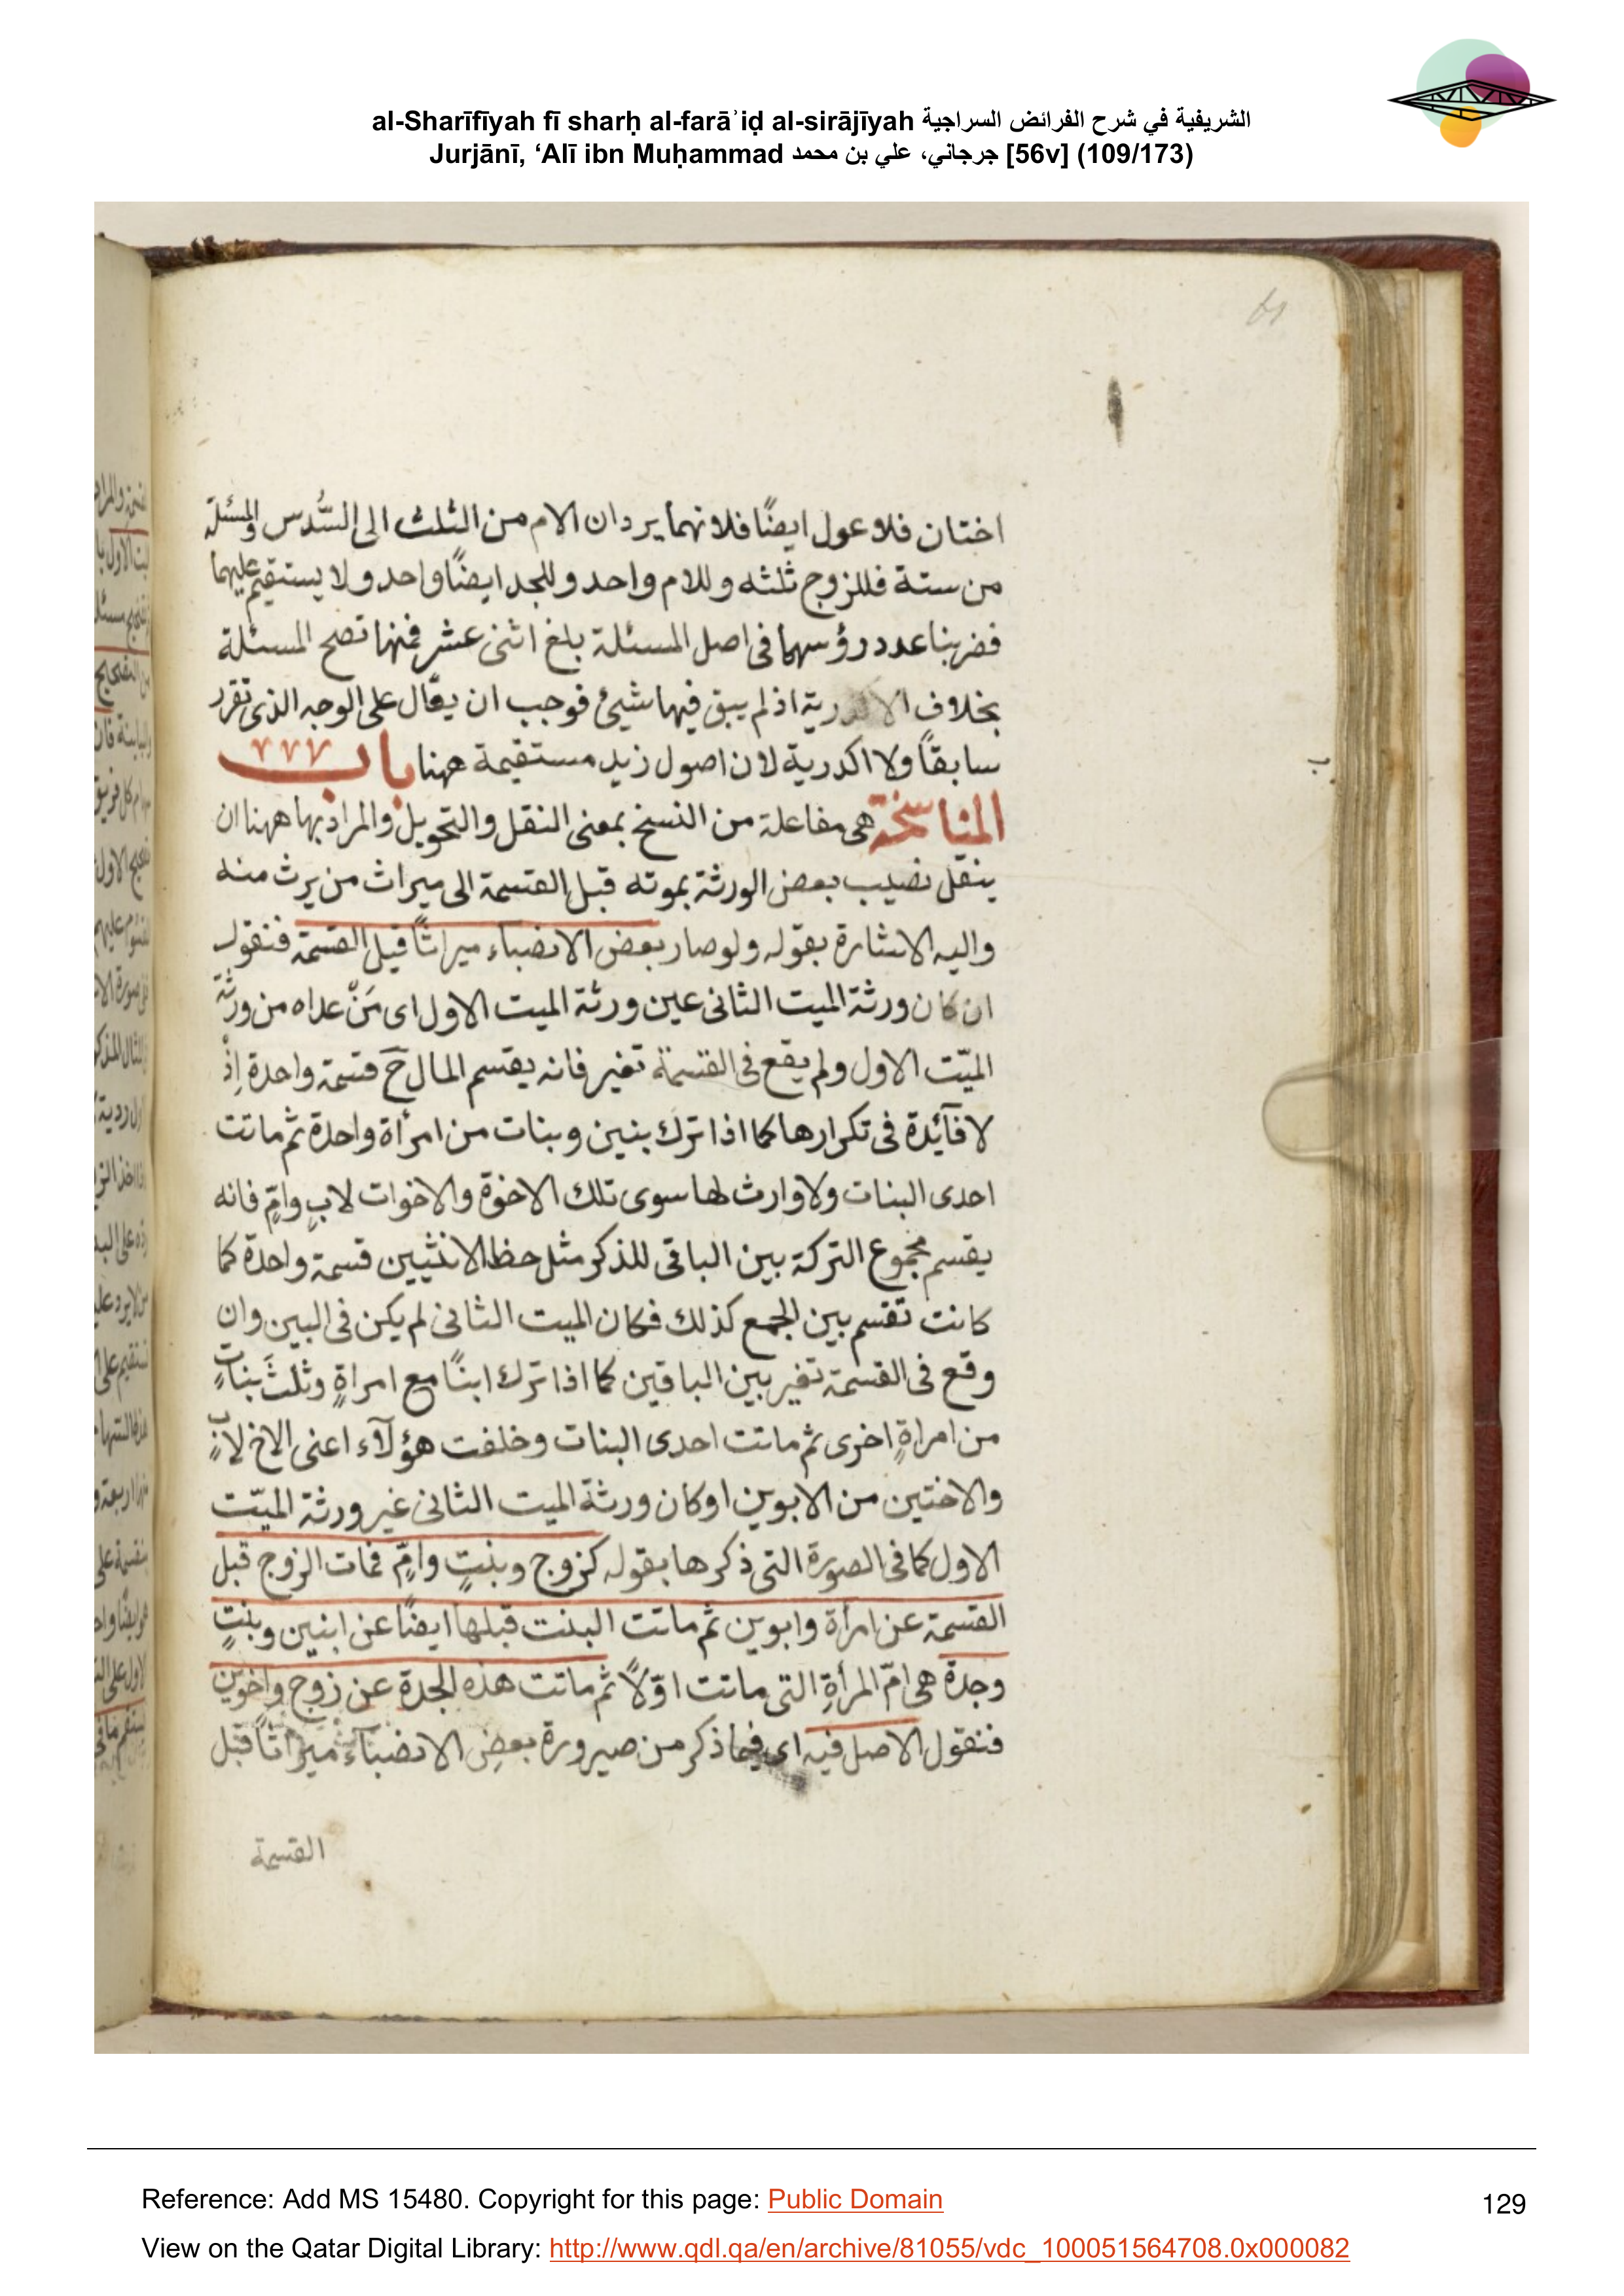 al-Sharīfīyah fī sharḥ al-farāʾiḍ al-sirājīyah الشريفية في شرح الفرائض السراجية
Jurjānī, ‘Alī ibn Muḥammad جرجاني، علي بن محمد [56v] (109/173)
اختان فلا عول ايضًا فلانهما يردان الام من الثلث الى السُّدس والمسئلة
من ستة فللزوج ثلثه وللام واحد وللجد ايضًا واحد ولا يستقيم عليهما
فضربنا عدد رؤسهما فى اصل المسئلة بلغ اثنى عشر فمنها تصح المسئلة
بخلاف الاكدرية اذ لم يبق فيها شيئ فوجب ان يقال على الوجه الذى تقرر
سابقًا ولا اكدرية لان اصول زيد مستقيمة ههنا باب
المناسخة هى مفاعلة من النسخ بمعنى النقل والتحويل والمراد بها ههنا ان
ينقل نصيب بعض الورثة بموته قبل القسمة الى ميراث من يرث منه
واليه الاشارة بقوله ولو صار بعض الانصباء ميراثًا قبل القسمة فنقول
ان كان ورثة الميت الثانى عين ورثة الميت الاول اى مَنْ عداه من ورثة
الميّت الاول ولم يقع فى القسمة تغير فانه يقسم المال حَ قسمة واحدة اِذْ
لا فآئدة فى تكرارها كما اذا ترك بنين وبنات من امرأة واحدة ثم ماتت
احدى البنات ولا وارث لها سوى تلك الاخوة والاخوات لابٍ وامٍّ فانه
يقسم مجموع التركة بين الباقى للذكر مثل حظ الانثيين قسمة واحدة كما
كانت تقسم بين الجمع كذلك فكان الميت الثانى لم يكن فى البين وان
وقع فى القسمة تغير بين الباقين كما اذا ترك ابنًا مع امراةٍ وثلثَ بناتٍ
من امراةٍ اخرى ثم ماتت احدى البنات وخلفت هؤلآء اعنى الاخ لابٍ
والاختين من الابوين اوكان ورثة الميت الثانى غير ورثة الميّت
الاول كما فى الصورة التى ذكرها بقوله كزوج وبنتٍ وامٍّ فمات الزوج قبل
القسمة عن امرأة وابوين ثم ماتت البنت قبلها ايضًا عن ابنين وبنتٍ
وجدة هى امّ المرأةِ التى ماتت اوّلاً ثم ماتت هذه الجدة عن زوج واخوين
فنقول الاصل فيه اى فيما ذكر من صيرورة بعضِ الانصبآء ميراثًا قبل
القسمة
Reference: Add MS 15480. Copyright for this page: Public Domain
129
View on the Qatar Digital Library: http://www.qdl.qa/en/archive/81055/vdc_100051564708.0x000082